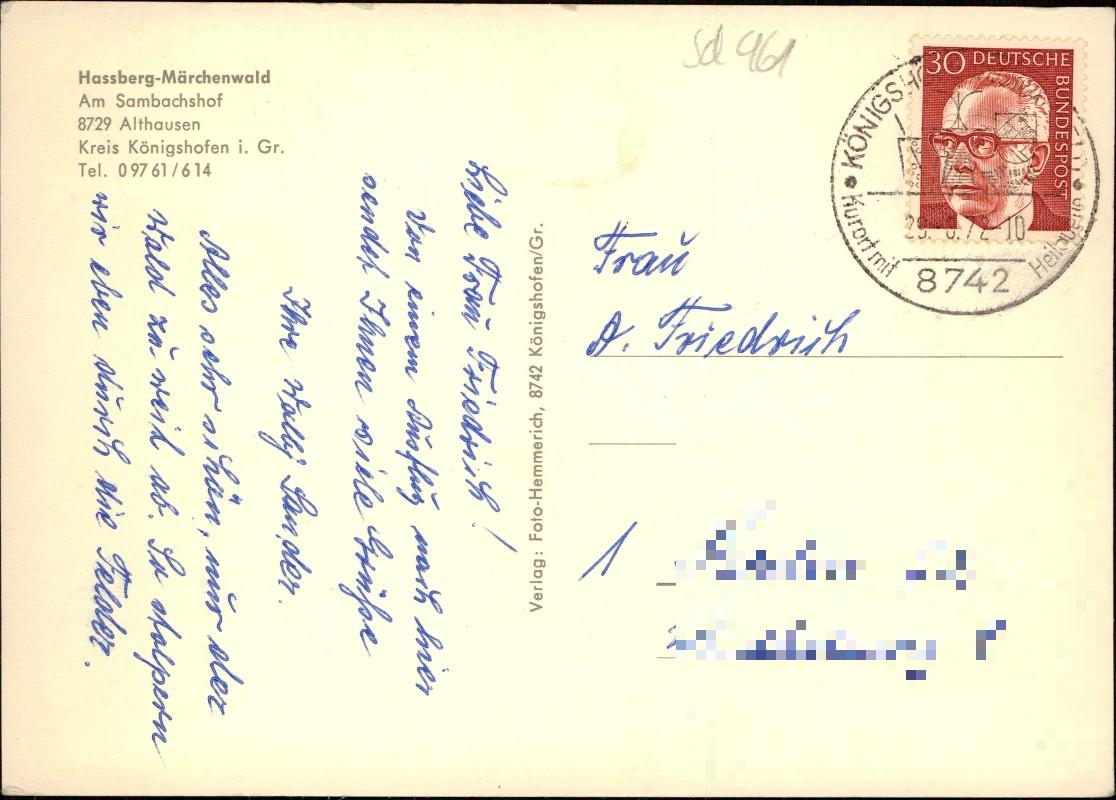 Hassberg-Märchenwald
Am Sambachshof
8729 Althausen
Kreis Königshofen i. Gr.
Tel. 09761/614
Liebe Frau Friedrich!
Von einem Ausflug nach hier
sendet Ihnen viele Grüße
Ihre Wally Sander.
Alles sehr schön, nur der
Wald zu weit ab. So stolpern
wir eben durch die Felder.
Verlag: Foto-Hemmerich, 8742 Königshofen/Gr.
Sd 961
30 DEUTSCHE BUNDESPOST
8742
Kurort mit
Frau
A. Friedrich
1